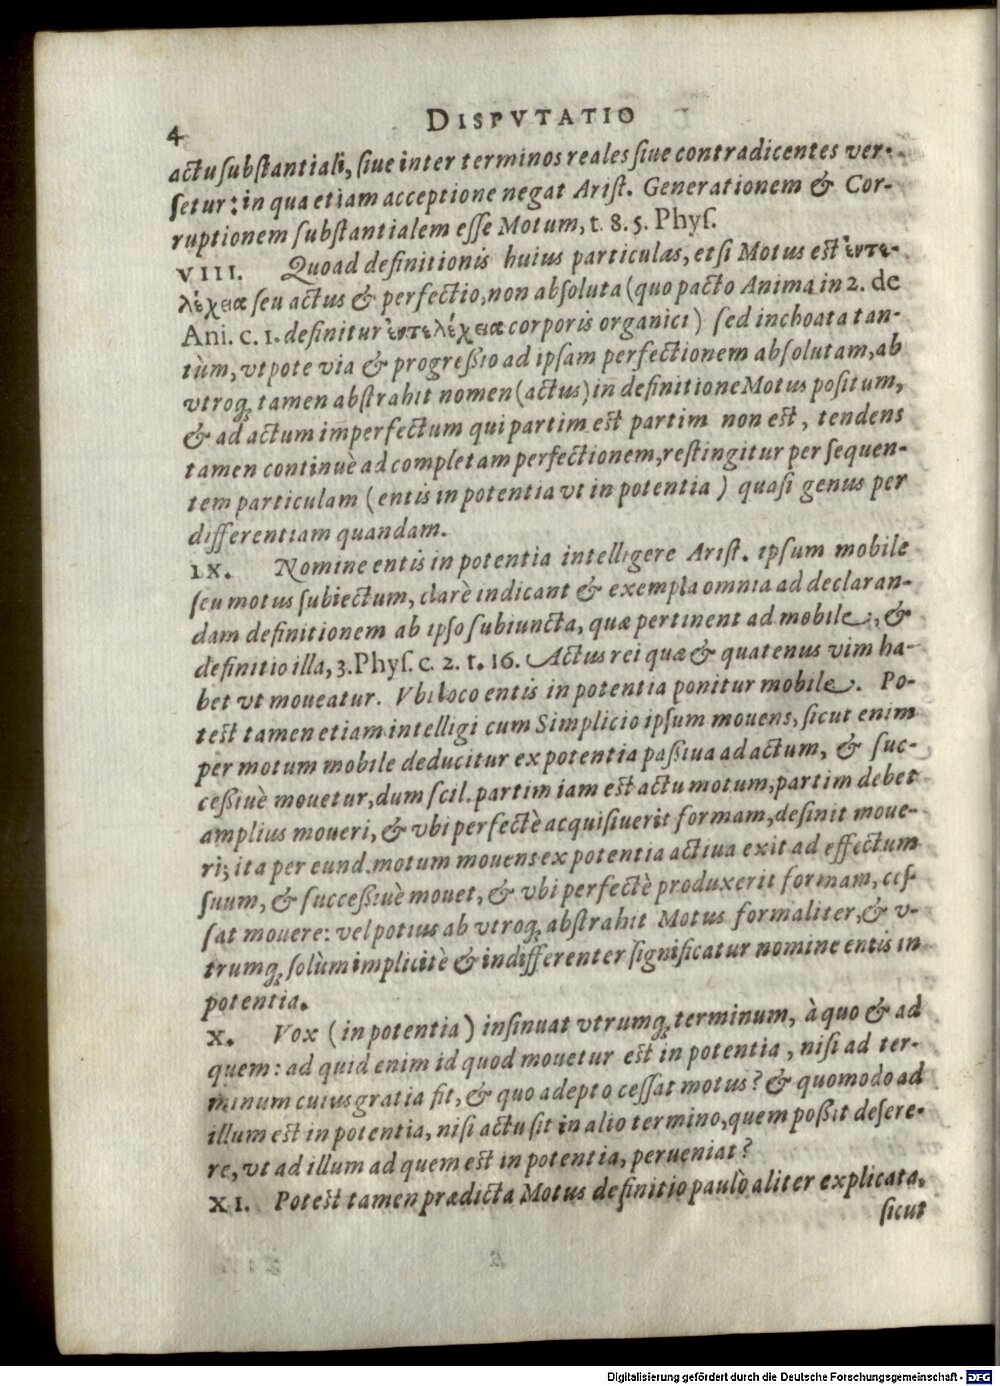 4 DISPVTATIO
actu substantiali, siue inter terminos reales siue contradicentes ver-
setur: in qua etiam acceptione negat Arist. Generationem & Cor-
ruptionem substantialem esse Motum, t. 8. 5. Phys.
VIII. Quoad definitionis huius particulas, etsi Motus est ἐντε-
λέχεια seu actus & perfectio, non absoluta (quo pacto Anima in 2. de
Ani. c. 1. definitur ἐντελέχεια corporis organici) sed inchoata tan-
tùm, vtpote via & progreßio ad ipsam perfectionem absolutam, ab
vtroq; tamen abstrahit nomen (actus) in definitione Motus positum,
& ad actum imperfectum qui partim est partim non est, tendens
tamen continuè ad completam perfectionem, restingitur per sequen-
tem particulam (entis in potentia vt in potentia) quasi genus per
differentiam quandam.
IX. Nomine entis in potentia intelligere Arist. ipsum mobile
seu motus subiectum, clarè indicant & exempla omnia ad declaran-
dam definitionem ab ipso subiuncta, quæ pertinent ad mobile, &
definitio illa, 3. Phys. c. 2. t. 16. Actus rei quæ & quatenus vim ha-
bet vt moueatur. Vbi loco entis in potentia ponitur mobile. Po-
test tamen etiam intelligi cum Simplicio ipsum mouens, sicut enim
per motum mobile deducitur ex potentia paßiua ad actum, & suc-
ceßiuè mouetur, dum scil. partim iam est actu motum, partim debet
amplius moueri, & vbi perfectè acquisiuerit formam, desinit moue-
ri; ita per eund. motum mouens ex potentia actiua exit ad effectum
suum, & succeßiuè mouet, & vbi perfectè produxerit formam, ces-
sat mouere: vel potius ab vtroq; abstrahit Motus formaliter, & v-
trumq; solùm implicitè & indifferenter significatur nomine entis in
potentia.
X. Vox (in potentia) insinuat vtrumq; terminum, à quo & ad
quem: ad quid enim id quod mouetur est in potentia, nisi ad ter-
minum cuius gratia fit, & quo adepto cessat motus? & quomodo ad
illum est in potentia, nisi actu sit in alio termino, quem poßit desere-
re, vt ad illum ad quem est in potentia, perueniat?
XI. Potest tamen prædicta Motus definitio paulò aliter explicata,
sicut
Digitalisierung gefördert durch die Deutsche Forschungsgemeinschaft - DFG